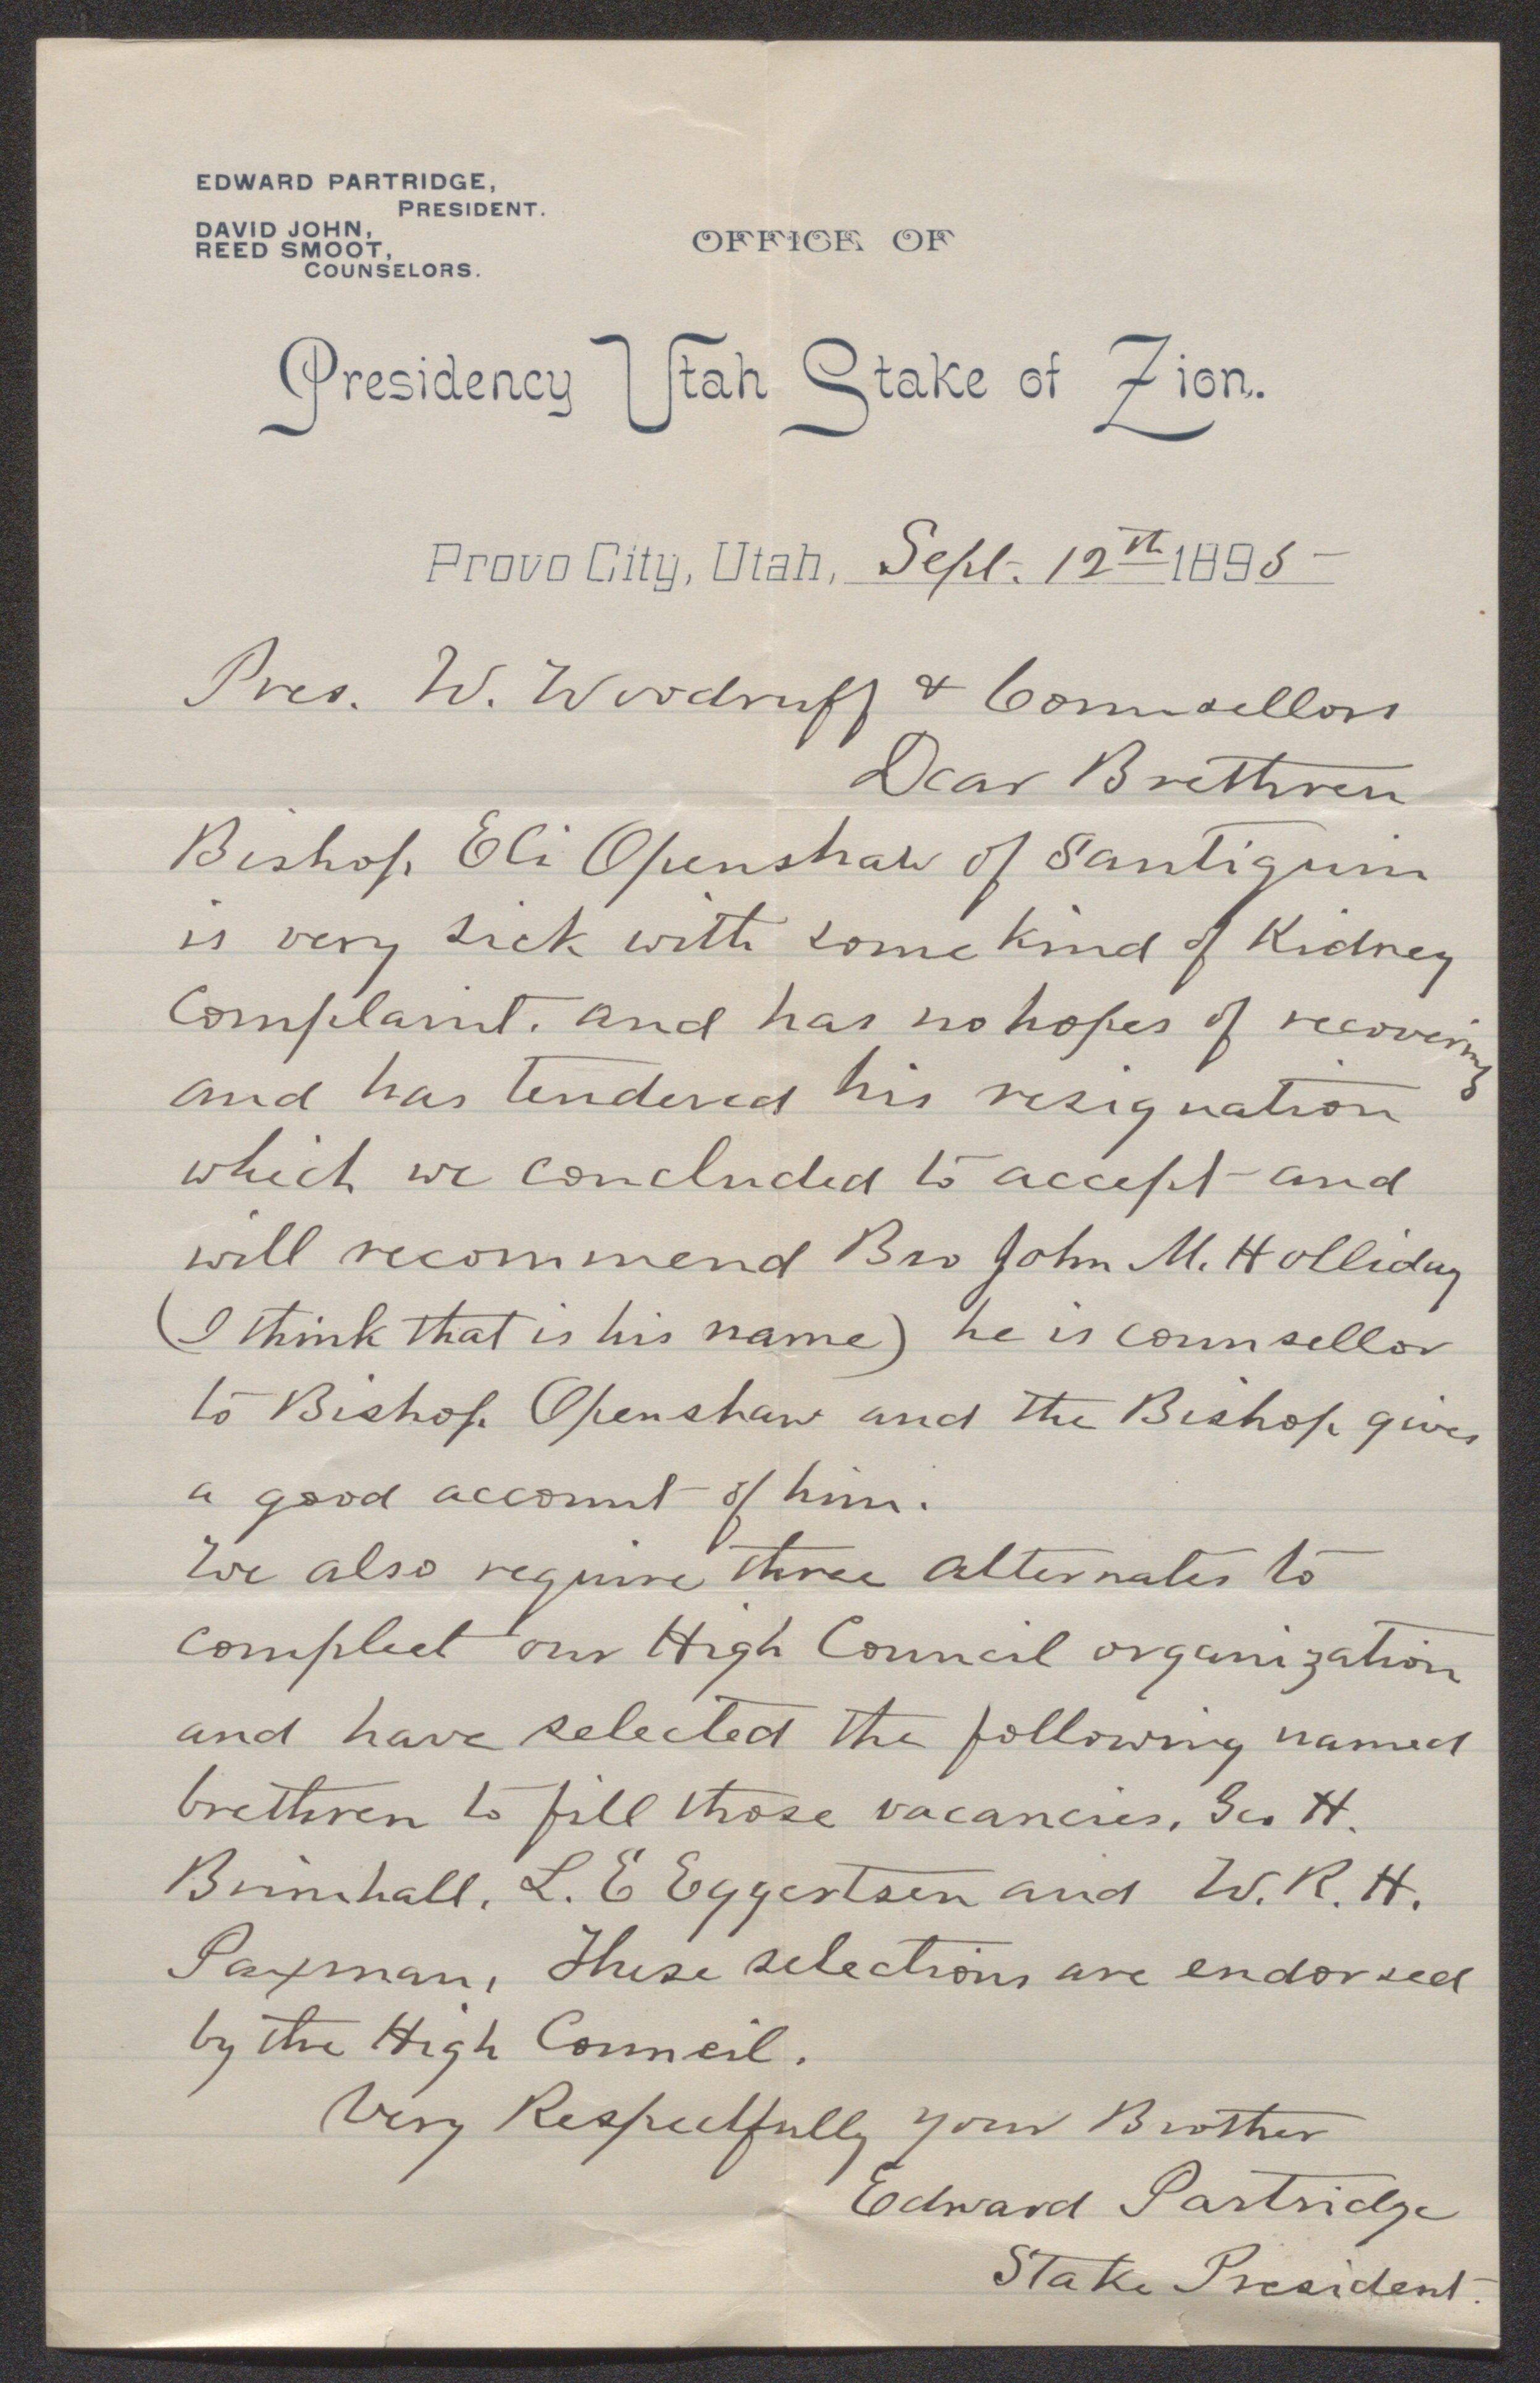 EDWARD PARTRIDGE,
PRESIDENT.
DAVID JOHN,
REED SMOOT,
COUNSELORS.
OFFICE OF
Presidency Utah Stake of Zion.
Provo City, Utah, Sept. 12th 1895
Pres. W. Woodruff & Counsellors
Dear Brethren
Bishop Eli Openshaw of Santiquin
is very sick with some kind of Kidney
Complaint. and has no hopes of recovering
and has tendered his resignation
which we concluded to accept and
will recommend Bro John M. Holliday
(I think that is his name) he is counsellor
to Bishop Openshaw and the Bishop gives
a good account of him.
We also require three alternates to
compleet our High Council organization
and have selected the following named
brethren to fill those vacancies, Geo H.
Brimhall, L. E Eggertsen and W. R. H.
Paxman, These selections are endorsed
by the High Council.
Very Respectfully your Brother
Edward Partridge
Stake President.